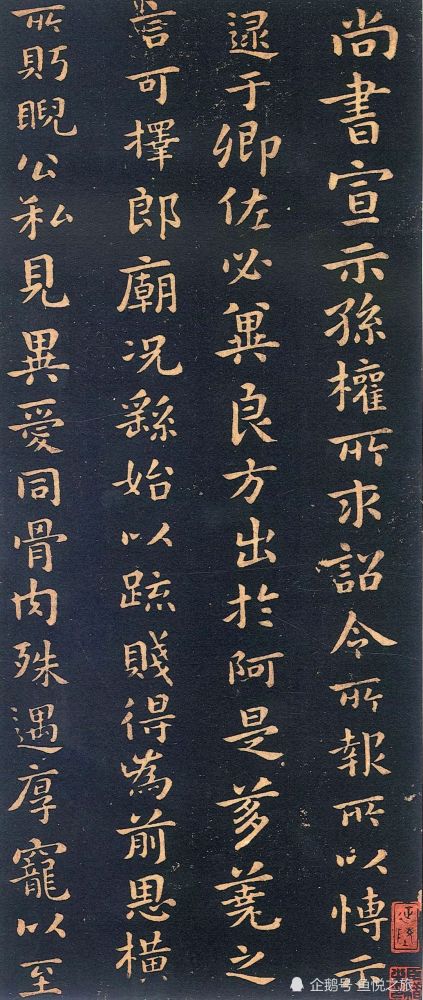 尚書宣示孫權所求詔令所報所以博示
逮于卿佐必冀良方出於阿是芻蕘之
言可擇郎廟況繇始以疏賤得為前恩橫
所盻睨公私見異愛同骨肉殊遇厚寵以至
企鹅号 鱼悦之旅